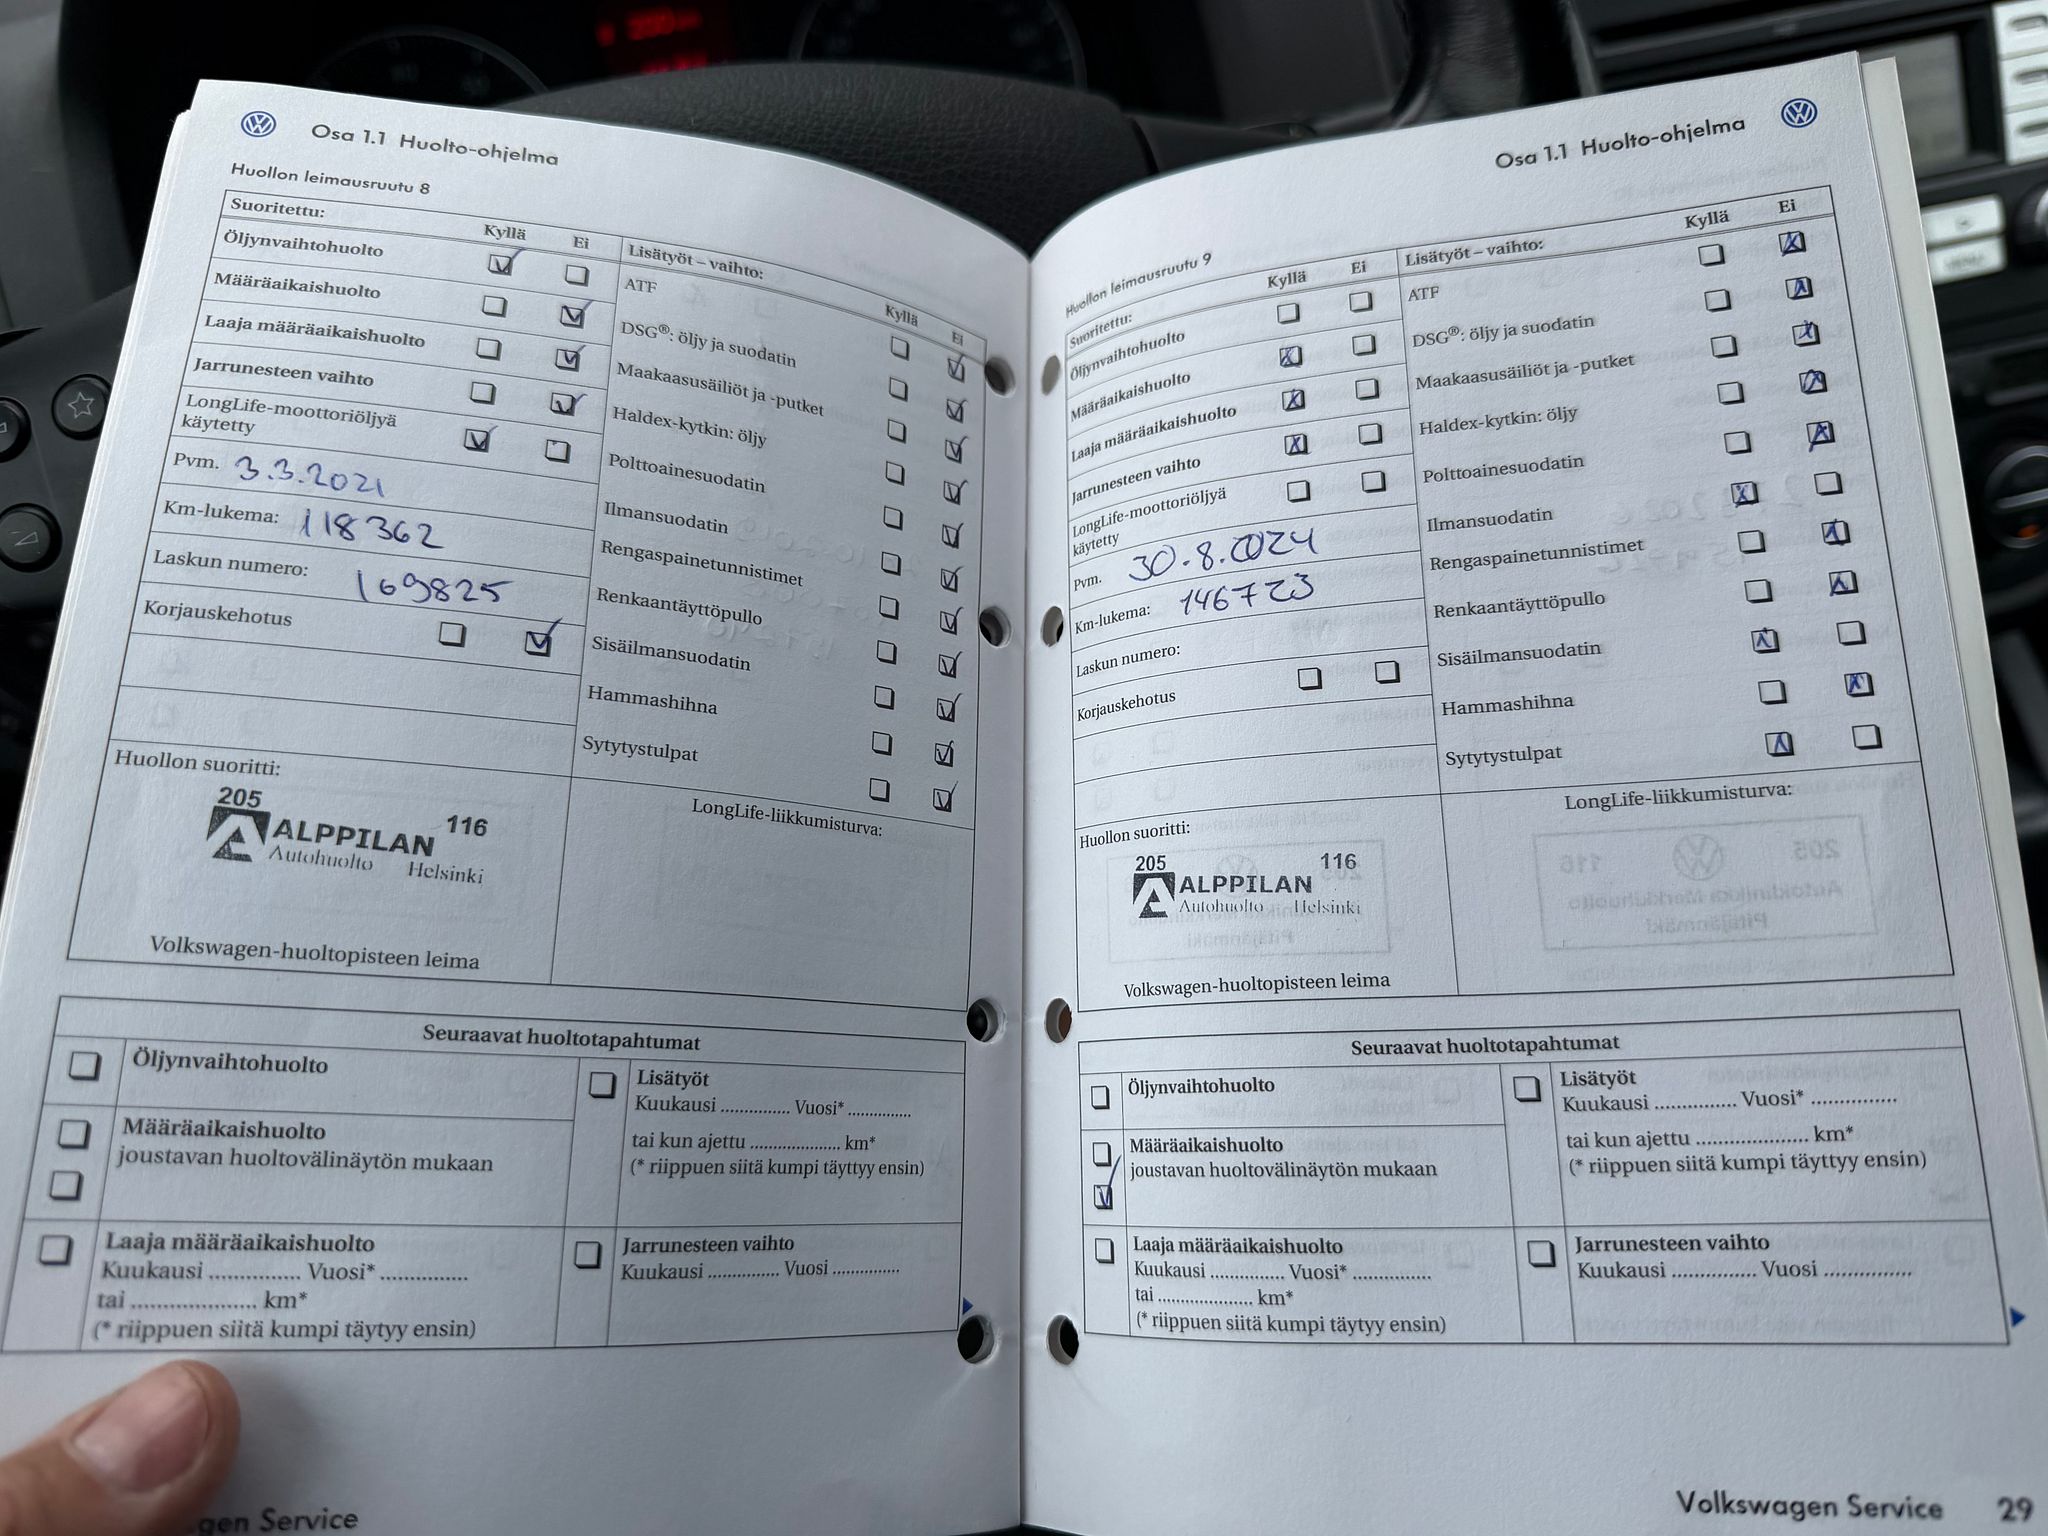 Osa 1.1 Huolto-ohjelma
Huollon leimausruutu 8
Suoritettu:
Kyllä Ei
Öljynvaihtohuolto
Määräaikaishuolto
Laaja määräaikaishuolto
Jarrunesteen vaihto
LongLife-moottoriöljyä
käytetty
Pvm. 3.3.2021
Km-lukema: 118362
Laskun numero: 169825
Korjauskehotus
Lisätyöt – vaihto:
Kyllä Ei
ATF
DSG®: öljy ja suodatin
Maakaasusäiliöt ja -putket
Haldex-kytkin: öljy
Polttoainesuodatin
Ilmansuodatin
Rengaspainetunnistimet
Renkaantäyttöpullo
Sisäilmansuodatin
Hammashihna
Sytytystulpat
Huollon suoritti:
205 116
ALPPILAN
Autohuolto Helsinki
Volkswagen-huoltopisteen leima
LongLife-liikkumisturva:
Seuraavat huoltotapahtumat
Öljynvaihtohuolto
Määräaikaishuolto
joustavan huoltovälinäytön mukaan
Laaja määräaikaishuolto
Kuukausi ............... Vuosi* ...............
tai ..................... km*
(* riippuen siitä kumpi täytyy ensin)
Lisätyöt
Kuukausi .............. Vuosi* .............
tai kun ajettu .................... km*
(* riippuen siitä kumpi täyttyy ensin)
Jarrunesteen vaihto
Kuukausi .............. Vuosi .............
gen Service
Osa 1.1 Huolto-ohjelma
Huollon leimausruutu 9
Suoritettu:
Kyllä Ei
Öljynvaihtohuolto
Määräaikaishuolto
Laaja määräaikaishuolto
Jarrunesteen vaihto
LongLife-moottoriöljyä
käytetty
Pvm. 30.8.2024
Km-lukema: 146723
Laskun numero:
Korjauskehotus
Lisätyöt – vaihto:
Kyllä Ei
ATF
DSG®: öljy ja suodatin
Maakaasusäiliöt ja -putket
Haldex-kytkin: öljy
Polttoainesuodatin
Ilmansuodatin
Rengaspainetunnistimet
Renkaantäyttöpullo
Sisäilmansuodatin
Hammashihna
Sytytystulpat
Huollon suoritti:
205 116
ALPPILAN
Autohuolto Helsinki
Volkswagen-huoltopisteen leima
LongLife-liikkumisturva:
Seuraavat huoltotapahtumat
Öljynvaihtohuolto
Määräaikaishuolto
joustavan huoltovälinäytön mukaan
Laaja määräaikaishuolto
Kuukausi .............. Vuosi* ...............
tai .................... km*
(* riippuen siitä kumpi täytyy ensin)
Lisätyöt
Kuukausi ................ Vuosi* ................
tai kun ajettu ...................... km*
(* riippuen siitä kumpi täyttyy ensin)
Jarrunesteen vaihto
Kuukausi ................ Vuosi ................
Volkswagen Service 29